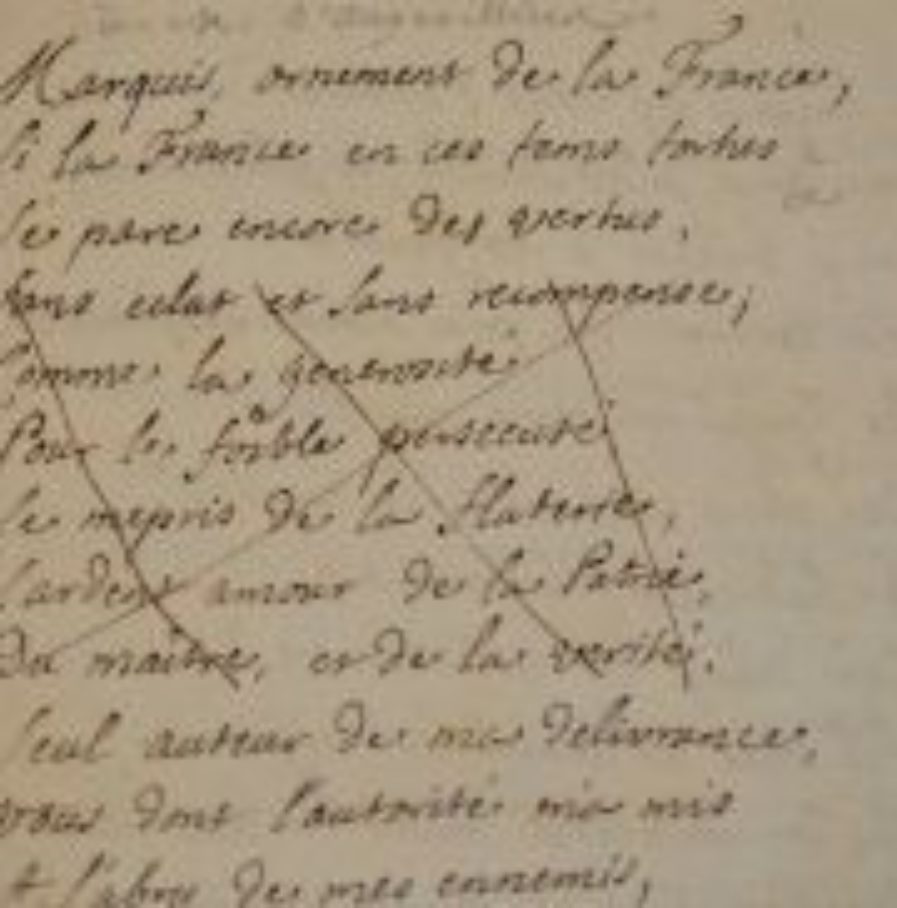 Marquis, ornement de la France,
si la France en ces tems
se pare encore des vertus,
sans eclat et sans recompense,
comme la generosité
Pour le foible persecuté
le mepris de la flaterie,
l'ardent amour de la Patrie,
Du maitre, et de la verité.
seul auteur de ma delivrance,
vous dont l'autorité m'a mis
A l'abry de mes ennemis,